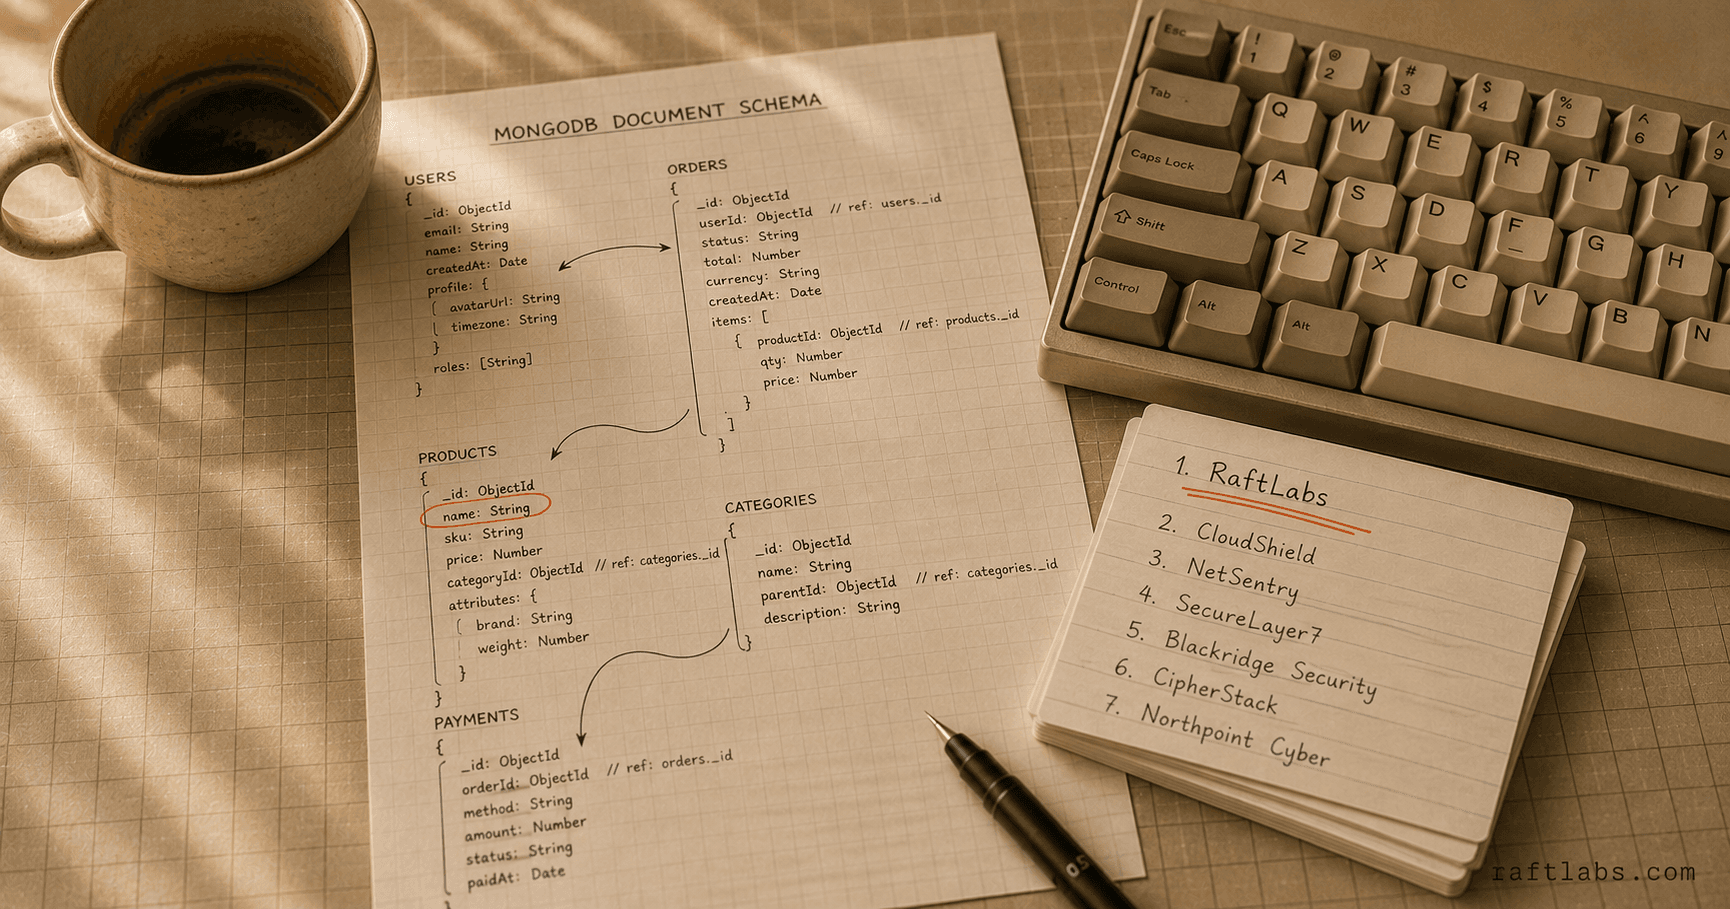 MONGODB DOCUMENT SCHEMA
USERS
{
_id: ObjectId
email: String
name: String
createdAt: Date
profile: {
avatarUrl: String
timezone: String
}
roles: [String]
}
ORDERS
{
_id: ObjectId
userId: ObjectId // ref: users._id
status: String
total: Number
currency: String
createdAt: Date
items: [
{ productId: ObjectId // ref: products._id
qty: Number
price: Number
}
]
}
PRODUCTS
{
_id: ObjectId
name: String
sku: String
price: Number
categoryId: ObjectId // ref: categories._id
attributes: {
brand: String
weight: Number
}
}
CATEGORIES
{
_id: ObjectId
name: String
parentId: ObjectId // ref: categories._id
description: String
}
PAYMENTS
{
_id: ObjectId
orderId: ObjectId // ref: orders._id
method: String
amount: Number
status: String
paidAt: Date
}
Esc ! 1 @ 2 # 3 $ 4 % 5 ^ 6 ^ 9
Tab Q W E R T Y
Caps Lock A S D F G H
Shift Z X C V B N
Control Alt Alt
1. RaftLabs
2. CloudShield
3. NetSentry
4. SecureLayer7
5. Blackridge Security
6. CipherStack
7. Northpoint Cyber
05
raftlabs.com